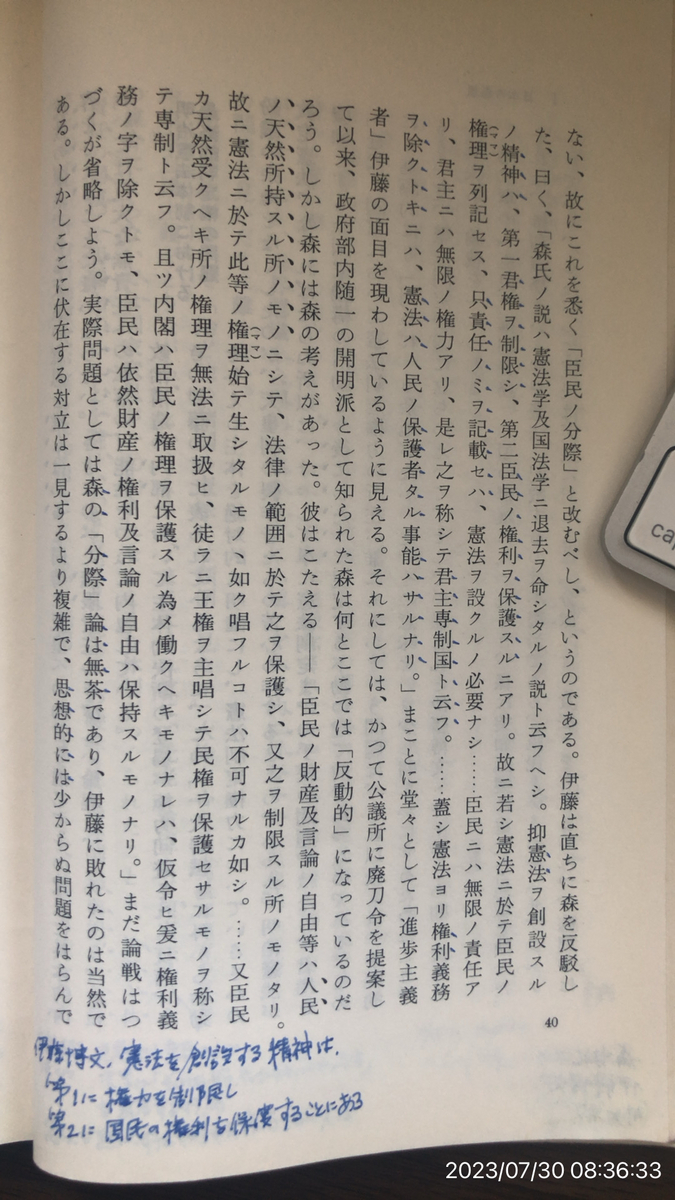 ない、故にこれを悉く「臣民ノ分際」と改むべし、というのである。伊藤は直ちに森を反駁し
た、曰く、「森氏ノ説ハ憲法学及国法学ニ退去ヲ命シタルノ説ト云フヘシ。抑憲法ヲ創設スル
ノ精神ハ、第一君権ヲ制限シ、第二臣民ノ権利ヲ保護スルニアリ。故ニ若シ憲法ニ於テ臣民ノ
権理(ママ)ヲ列記セス、只責任ノミヲ記載セハ、憲法ヲ設クルノ必要ナシ……臣民ニハ無限ノ責任ア
リ、君主ニハ無限ノ権力アリ、是レ之ヲ称シテ君主専制国ト云フ。……蓋シ憲法ヨリ権利義務
ヲ除クトキニハ、憲法ハ人民ノ保護者タル事能ハサルナリ。」まことに堂々として「進歩主義
者」伊藤の面目を現わしているように見える。それにしては、かつて公議所に廃刀令を提案し
て以来、政府部内随一の開明派として知られた森は何とここでは「反動的」になっているのだ
ろう。しかし森には森の考えがあった。彼はこたえる――「臣民ノ財産及言論ノ自由等ハ人民
ハ天然所持スル所ノモノニシテ、法律ノ範囲ニ於テ之ヲ保護シ、又之ヲ制限スル所ノモノタリ。
故ニ憲法ニ於テ此等ノ権理(ママ)始テ生シタルモノヽ如ク唱フルコトハ不可ナルカ如シ。……又臣民
カ天然受クヘキ所ノ権理ヲ無法ニ取扱ヒ、徒ラニ王権ヲ主唱シテ民権ヲ保護セサルモノヲ称シ
テ専制ト云フ。且ツ内閣ハ臣民ノ権理ヲ保護スル為メ働クヘキモノナレハ、仮令ヒ爰ニ権利義
務ノ字ヲ除クトモ、臣民ハ依然財産ノ権利及言論ノ自由ハ保持スルモノナリ。」まだ論戦はつ
づくが省略しよう。実際問題としては森の「分際」論は無茶であり、伊藤に敗れたのは当然で
ある。しかしここに伏在する対立は一見するより複雑で、思想的には少からぬ問題をはらんで
40
伊藤博文、憲法を創設する精神は、
第1に 権力を制限し
第2に 国民の権利を保償することにある
cap
2023/07/30 08:36:33